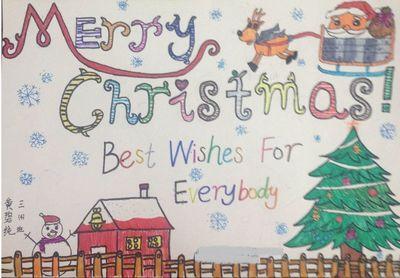 Merry
Christmas!
Best Wishes For
Everybody